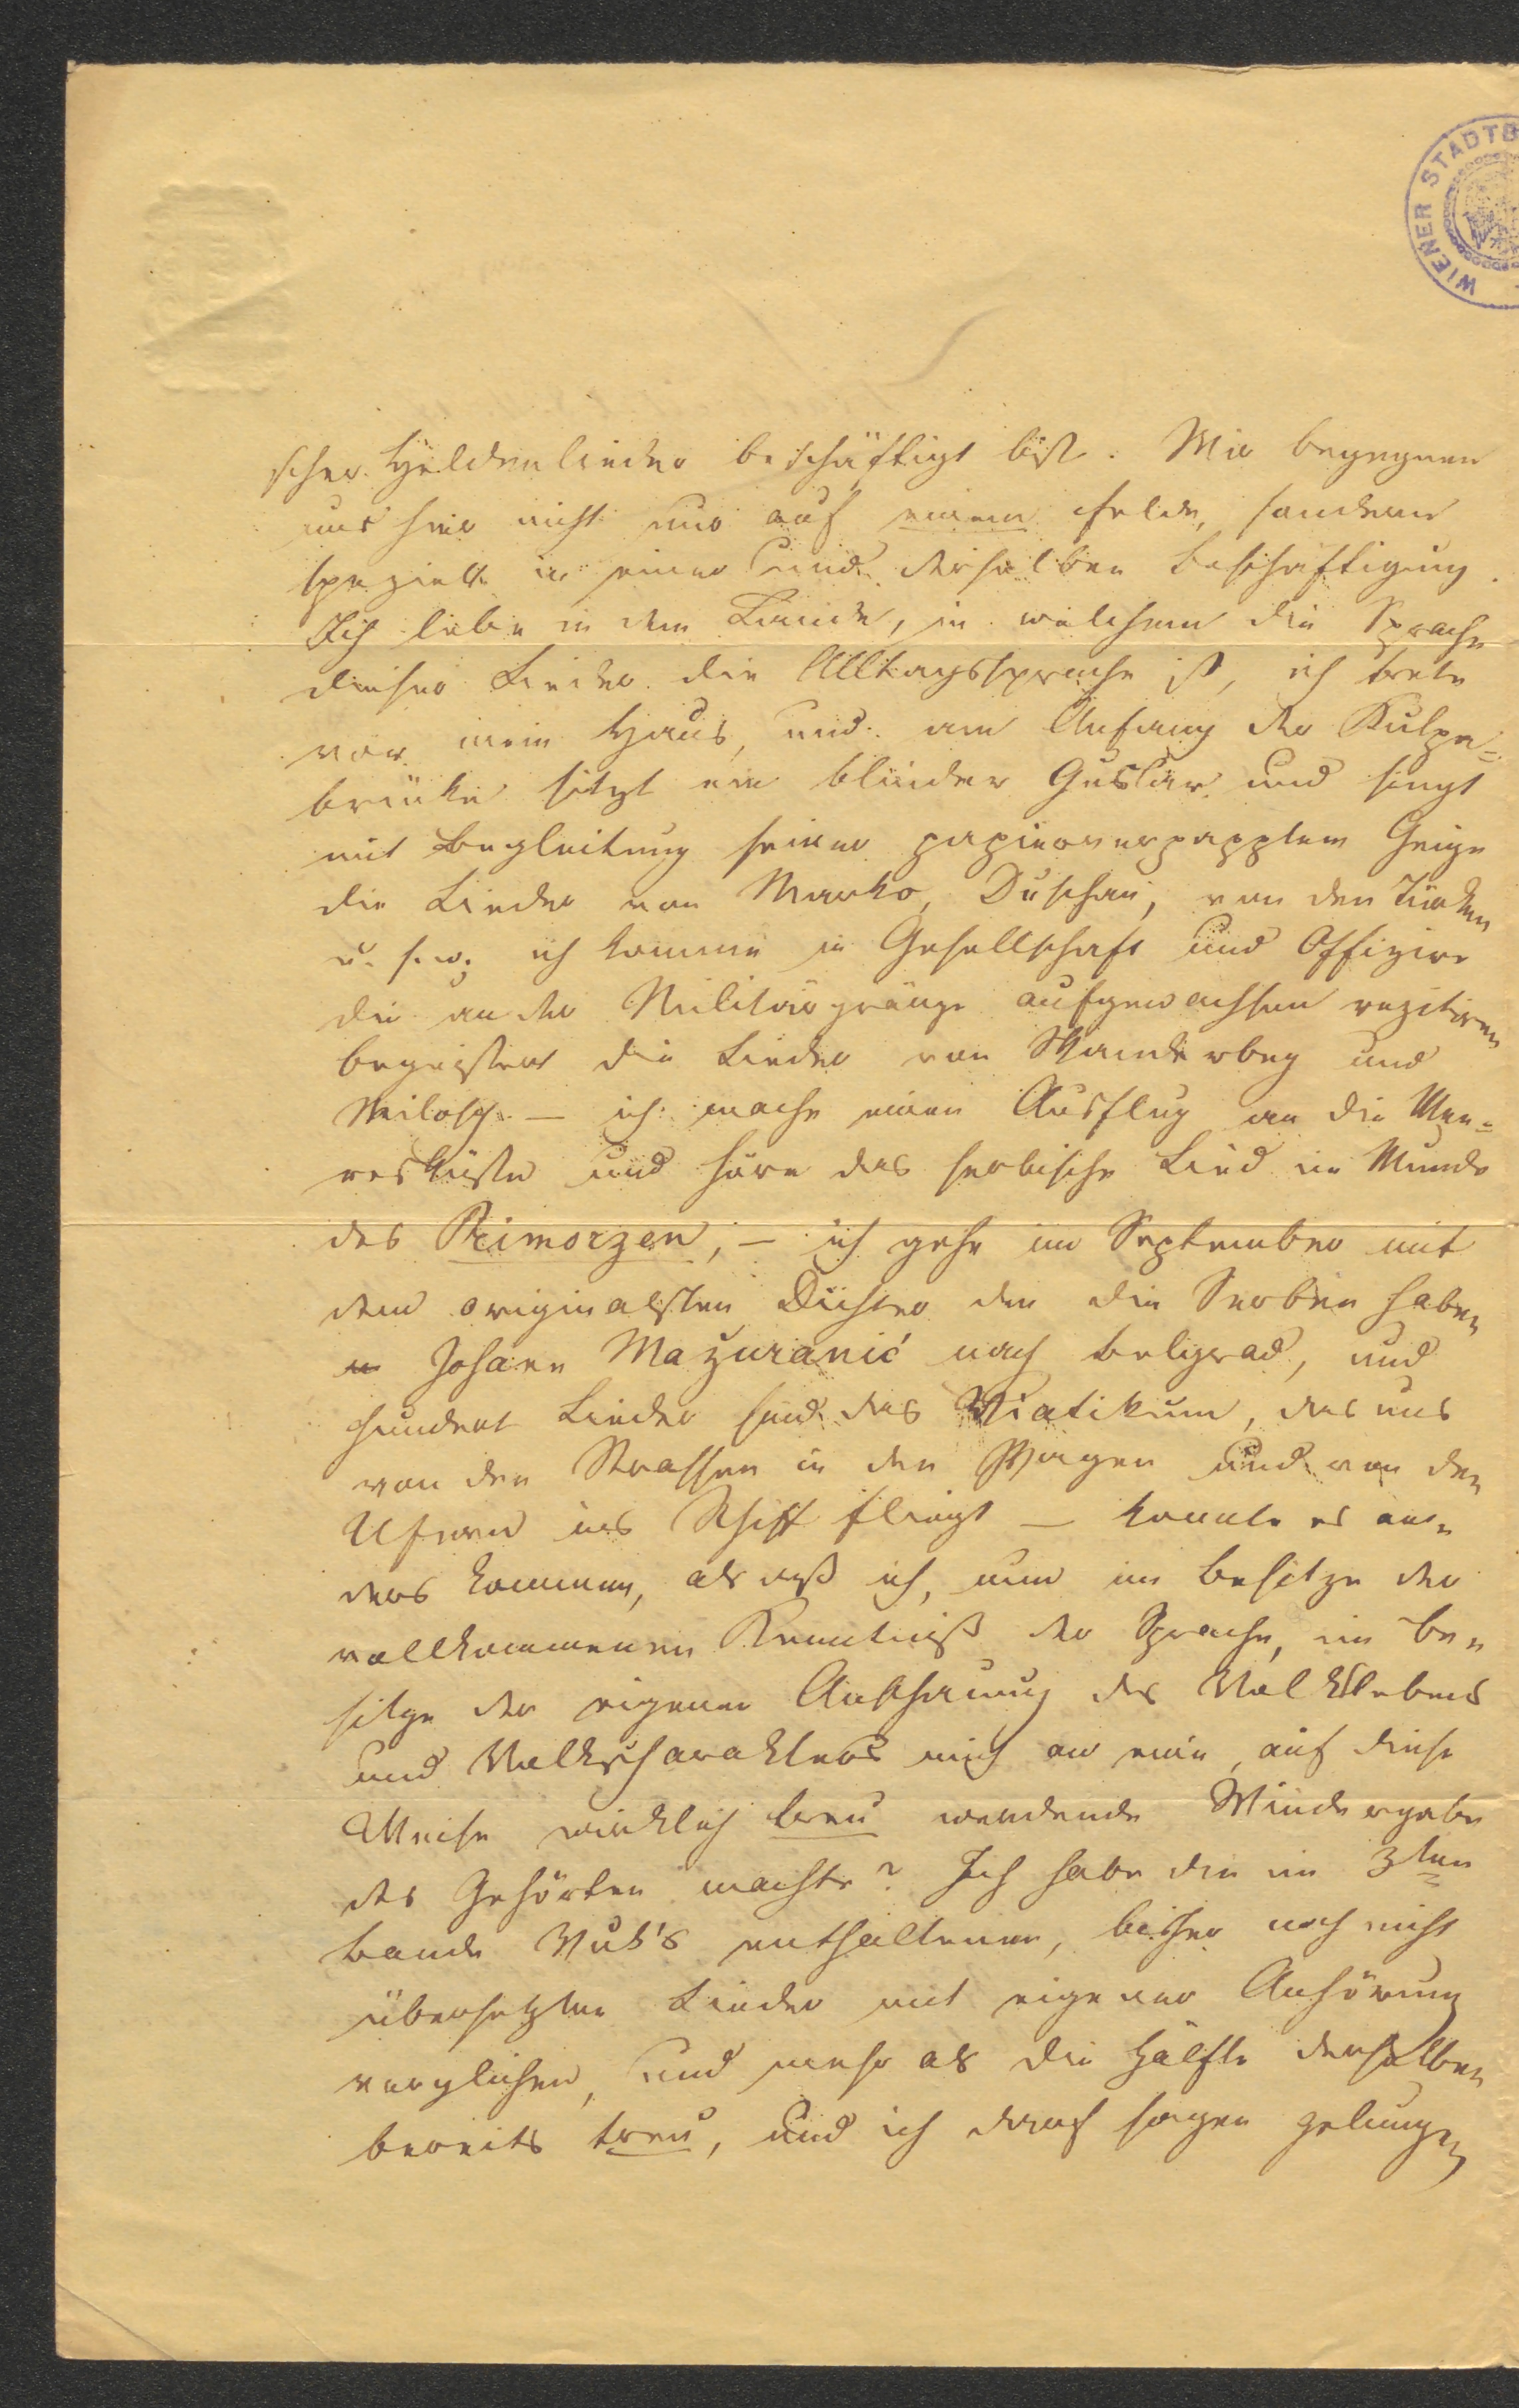 WIENER STADTB
scher Heldenlieder beschäftigt bist. Wir begegnen
uns hier nicht nur auf einem Felde, sondern
speziell in einer und derselben Beschäftigung.
Ich lebe in dem Lande, in welchem die Sprache
dieser Lieder die Alltagssprache ist, ich trete
vor mein Haus, und am Anfang der Kulpa=
brücke sitzt ein blinder Guslar und singt
mit Begleitung seiner papierverpappten Geige
die Lieder von Marko, Duschan, von den Türken
u. s. w. ich komme in Gesellschaft und Offizire
die an der Militärgränze aufgewachsen rezitiren
begeistert die Lieder von Skanderbeg und
Milosch. — ich mache einen Ausflug an die Mee=
resküste und höre das serbische Lied im Munde
des Primorzen, — ich gehe im September mit
dem originalsten Dichter den die Serben haben
Johann Mažuranić nach Belgrad, und
hundert Lieder sind das Viatikum, das uns
von den Strassen in den Wagen und von den
Ufern ins Schiff fliegt — konnte es an=
ders kommen, als daß ich, nun im Besitze der
vollkommenen Kenntniß der Sprache, im Be=
sitze der eigenen Anschauung des Volkslebens
und Volkscharakters mich an eine, auf diese
Weise wirklich treu werdende Wiedergabe
des Gehörten machte? Ich habe die im 3ten
Bande Vuk's enthaltenen, bisher noch nicht
übersetzten Lieder mit eigener Anhörung
verglichen, und mehr als die Hälfte derselben
bereits treu, und ich darf sagen gelungen